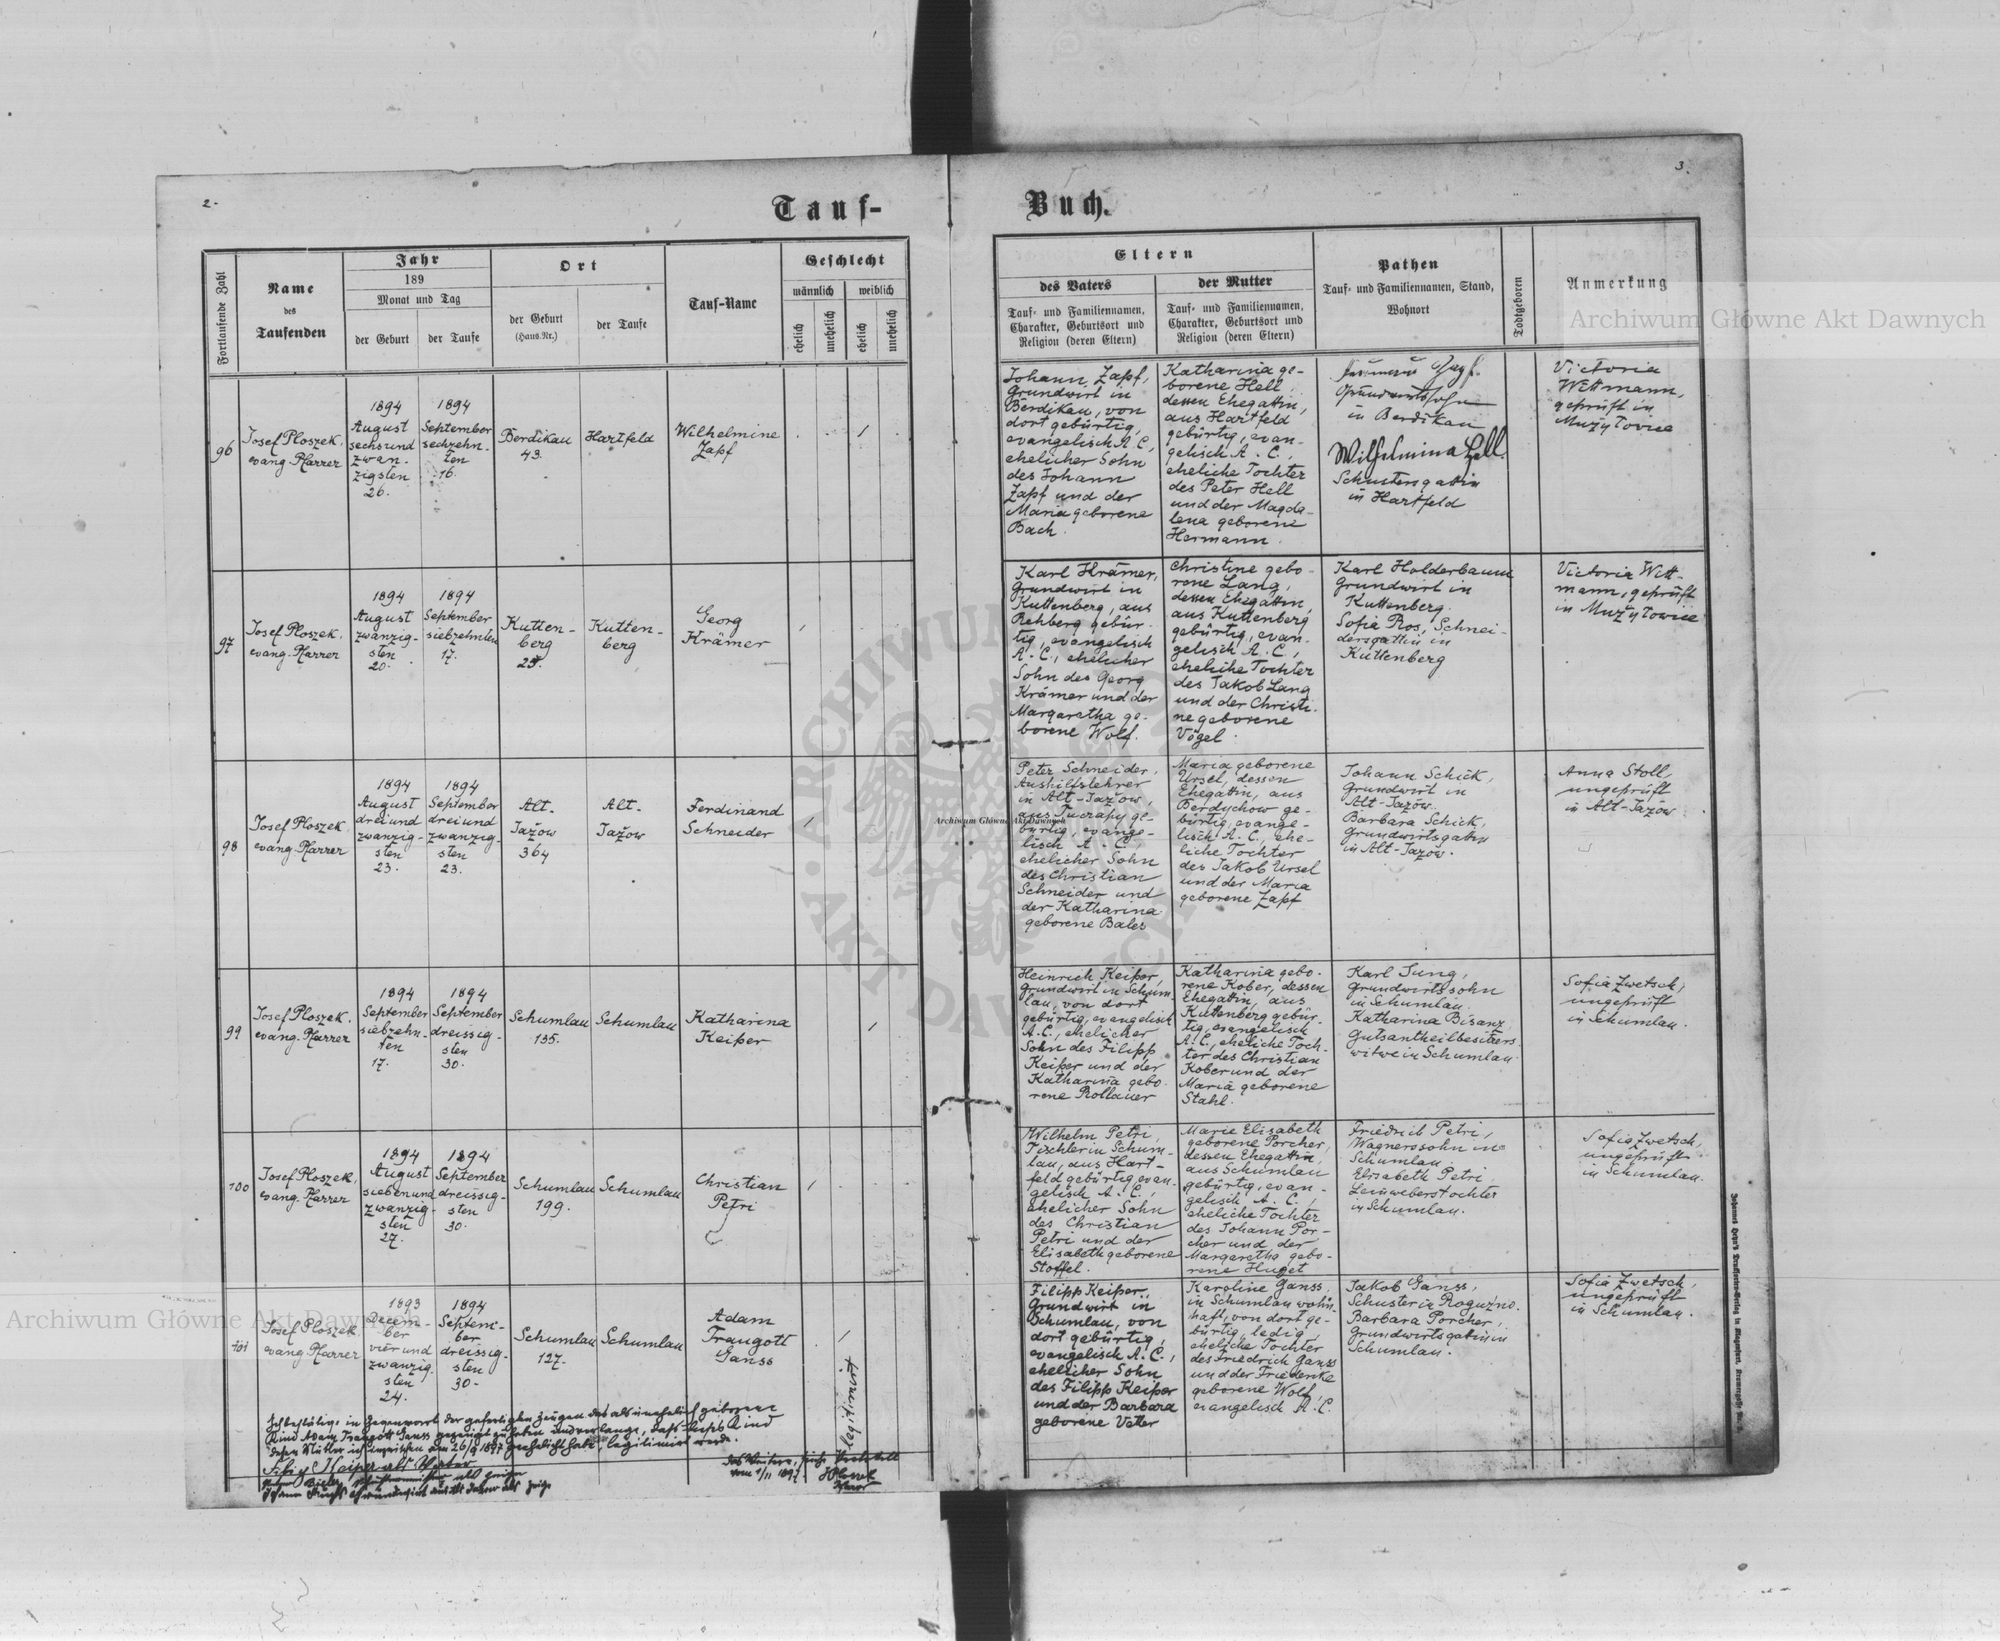 2.
3.
Tauf-
Buch.
Fortlaufende Zahl
Name
des
Taufenden
Jahr
189
Monat und Tag
der Geburt
der Taufe
Ort
der Geburt
(Haus-Nr.)
der Taufe
Tauf-Name
Geschlecht
männlich
weiblich
ehelich
unehelich
ehelich
unehelich
Eltern
des Vaters
Tauf- und Familiennamen,
Charakter, Geburtsort und
Religion (deren Eltern)
der Mutter
Tauf- und Familiennamen,
Charakter, Geburtsort und
Religion (deren Eltern)
Pathen
Tauf- und Familiennamen, Stand,
Wohnort
Todtgeboren
Anmerkung
96
Josef Ploszek,
evang. Pfarrer
1894
August
sechsund
zwan-
zigsten
26.
1894
September
sechzehn-
ten
16.
Berdikau
43.
Hartfeld
Wilhelmine
Zapf
Johann Zapf,
Grundwirt in
Berdikau, von
dort gebürtig,
evangelisch A.C.,
ehelicher Sohn
des Johann
Zapf und der
Maria geborene
Bach.
Katharina ge-
borene Hell,
dessen Ehegattin,
aus Hartfeld
gebürtig, evan-
gelisch A.C.,
eheliche Tochter
des Peter Hell
und der Magda-
lena geborene
Hermann.
Zapf.
Grundwirtssohn
in Berdikau
Wilhelmina Hell.
Schustersgattin
in Hartfeld
Victoria
Wittmann,
geprüft in
Mużyłowice
97
Josef Ploszek,
evang. Pfarrer
1894
August
zwanzig-
sten
20.
1894
September
siebzehnten
17.
Kutten-
berg
25.
Kutten-
berg
Georg
Krämer
Karl Krämer,
Grundwirt in
Kuttenberg, aus
Rehberg gebür-
tig, evangelisch
A.C., ehelicher
Sohn des Georg
Krämer und der
Margaretha ge-
borene Wolf.
Christine gebo-
rene Lang,
dessen Ehegattin,
aus Kuttenberg
gebürtig, evan-
gelisch A.C.,
eheliche Tochter
des Jakob Lang
und der Christi-
ne geborene
Vogel.
Karl Holderbaum
Grundwirt in
Kuttenberg.
Sofia Ros, Schnei-
dersgattin in
Kuttenberg
Victoria Witt-
mann, geprüft
in Mużyłowice
98
Josef Ploszek
evang. Pfarrer
1894
August
dreiund
zwanzig-
sten
23.
1894
September
dreiund
zwanzig-
sten
23.
Alt-
Jażow
364
Alt-
Jażow
Ferdinand
Schneider
Peter Schneider,
Aushilfslehrer
in Alt-Jażow,
aus Tuczapy ge-
bürtig, evange-
lisch A.C.
ehelicher Sohn
des Christian
Schneider und
der Katharina
geborene Bales
Maria geborene
Ursel, dessen
Ehegattin, aus
Berdychow ge-
bürtig, evange-
lisch A.C., ehe-
liche Tochter
des Jakob Ursel
und der Maria
geborene Zapf
Johann Schick,
Grundwirt in
Alt-Jazow.
Barbara Schick,
Grundwirtsgattin
in Alt-Jazow.
Anna Stoll,
ungeprüft
in Alt-Jazow
99
Josef Ploszek,
evang. Pfarrer
1894
September
siebzehn-
ten
17.
1894
September
dreissig-
sten
30.
Schumlau
135.
Schumlau
Katharina
Keiper
Heinrich Keiper,
Grundwirt in Schum-
lau, von dort
gebürtig, evangelisch
A.C., ehelicher
Sohn des Filipp
Keiper und der
Katharina gebo-
rene Rollauer
Katharina gebo-
rene Kober, dessen
Ehegattin, aus
Kuttenberg gebür-
tig, evangelisch
A.C., eheliche Toch-
ter des Christian
Kober und der
Maria geborene
Stahl.
Karl Jung,
Grundwirtssohn
in Schumlau.
Katharina Bisanz,
Gutsantheilbesitzers
witwe in Schumlau.
Sofia Zwetsch,
ungeprüft
in Schumlau.
100
Josef Ploszek,
evang. Pfarrer
1894
August
siebenund
zwanzig-
sten
27.
1894
September
dreissig-
sten
30.
Schumlau
199.
Schumlau
Christian
Petri
Wilhelm Petri,
Tischler in Schum-
lau, aus Hart-
feld gebürtig, evan-
gelisch A.C.,
ehelicher Sohn
des Christian
Petri und der
Elisabeth geborene
Stoffel.
Marie Elisabeth
geborene Porcher,
dessen Ehegattin,
aus Schumlau
gebürtig, evan-
gelisch A.C.,
eheliche Tochter
des Johann Por-
cher und der
Margaretha gebo-
rene Huget
Friedrich Petri,
Wagnerssohn in
Schumlau.
Elisabeth Petri
Leinweberstochter
in Schumlau.
Sofia Zwetsch,
ungeprüft
in Schumlau.
101
Josef Ploszek
evang. Pfarrer
1893
Decem-
ber
vierund
zwanzig-
sten
24.
1894
Septem-
ber
dreissig-
sten
30.
Schumlau
127.
Schumlau
Adam
Traugott
Ganss
legitimirt
Filipp Keiper,
Grundwirt in
Schumlau, von
dort gebürtig,
evangelisch A.C.,
ehelicher Sohn
des Filipp Keiper
und der Barbara
geborene Vetter
Karoline Ganss,
in Schumlau wohn-
haft, von dort ge-
bürtig, ledig,
eheliche Tochter
des Friedrich Ganss
und der Friedericke
geborene Wolf,
evangelisch A.C.
Jakob Ganss,
Schuster in Roguzno.
Barbara Porcher,
Grundwirtsgattin in
Schumlau.
Sofia Zwetsch,
ungeprüft
in Schumlau.
Ich bestätige in Gegenwart der gefertigten Zeugen das als unehelich geborene
Kind Adam Traugott Ganss gezeugt zu haben und verlange, dass dieses Kind
dessen Mutter ich inzwischen am 26/9 1897 geehelicht habe, legitimirt werde.
Filip Keiper als Vater
als Zeuge
Johann als Zeuge
vom 1/11 1897
Pfarrer
Archiwum Główne Akt Dawnych
Archiwum Główne Akt Dawnych
Archiwum Główne Akt Dawnych
ARCHIWUM
AKT DAWNYCH